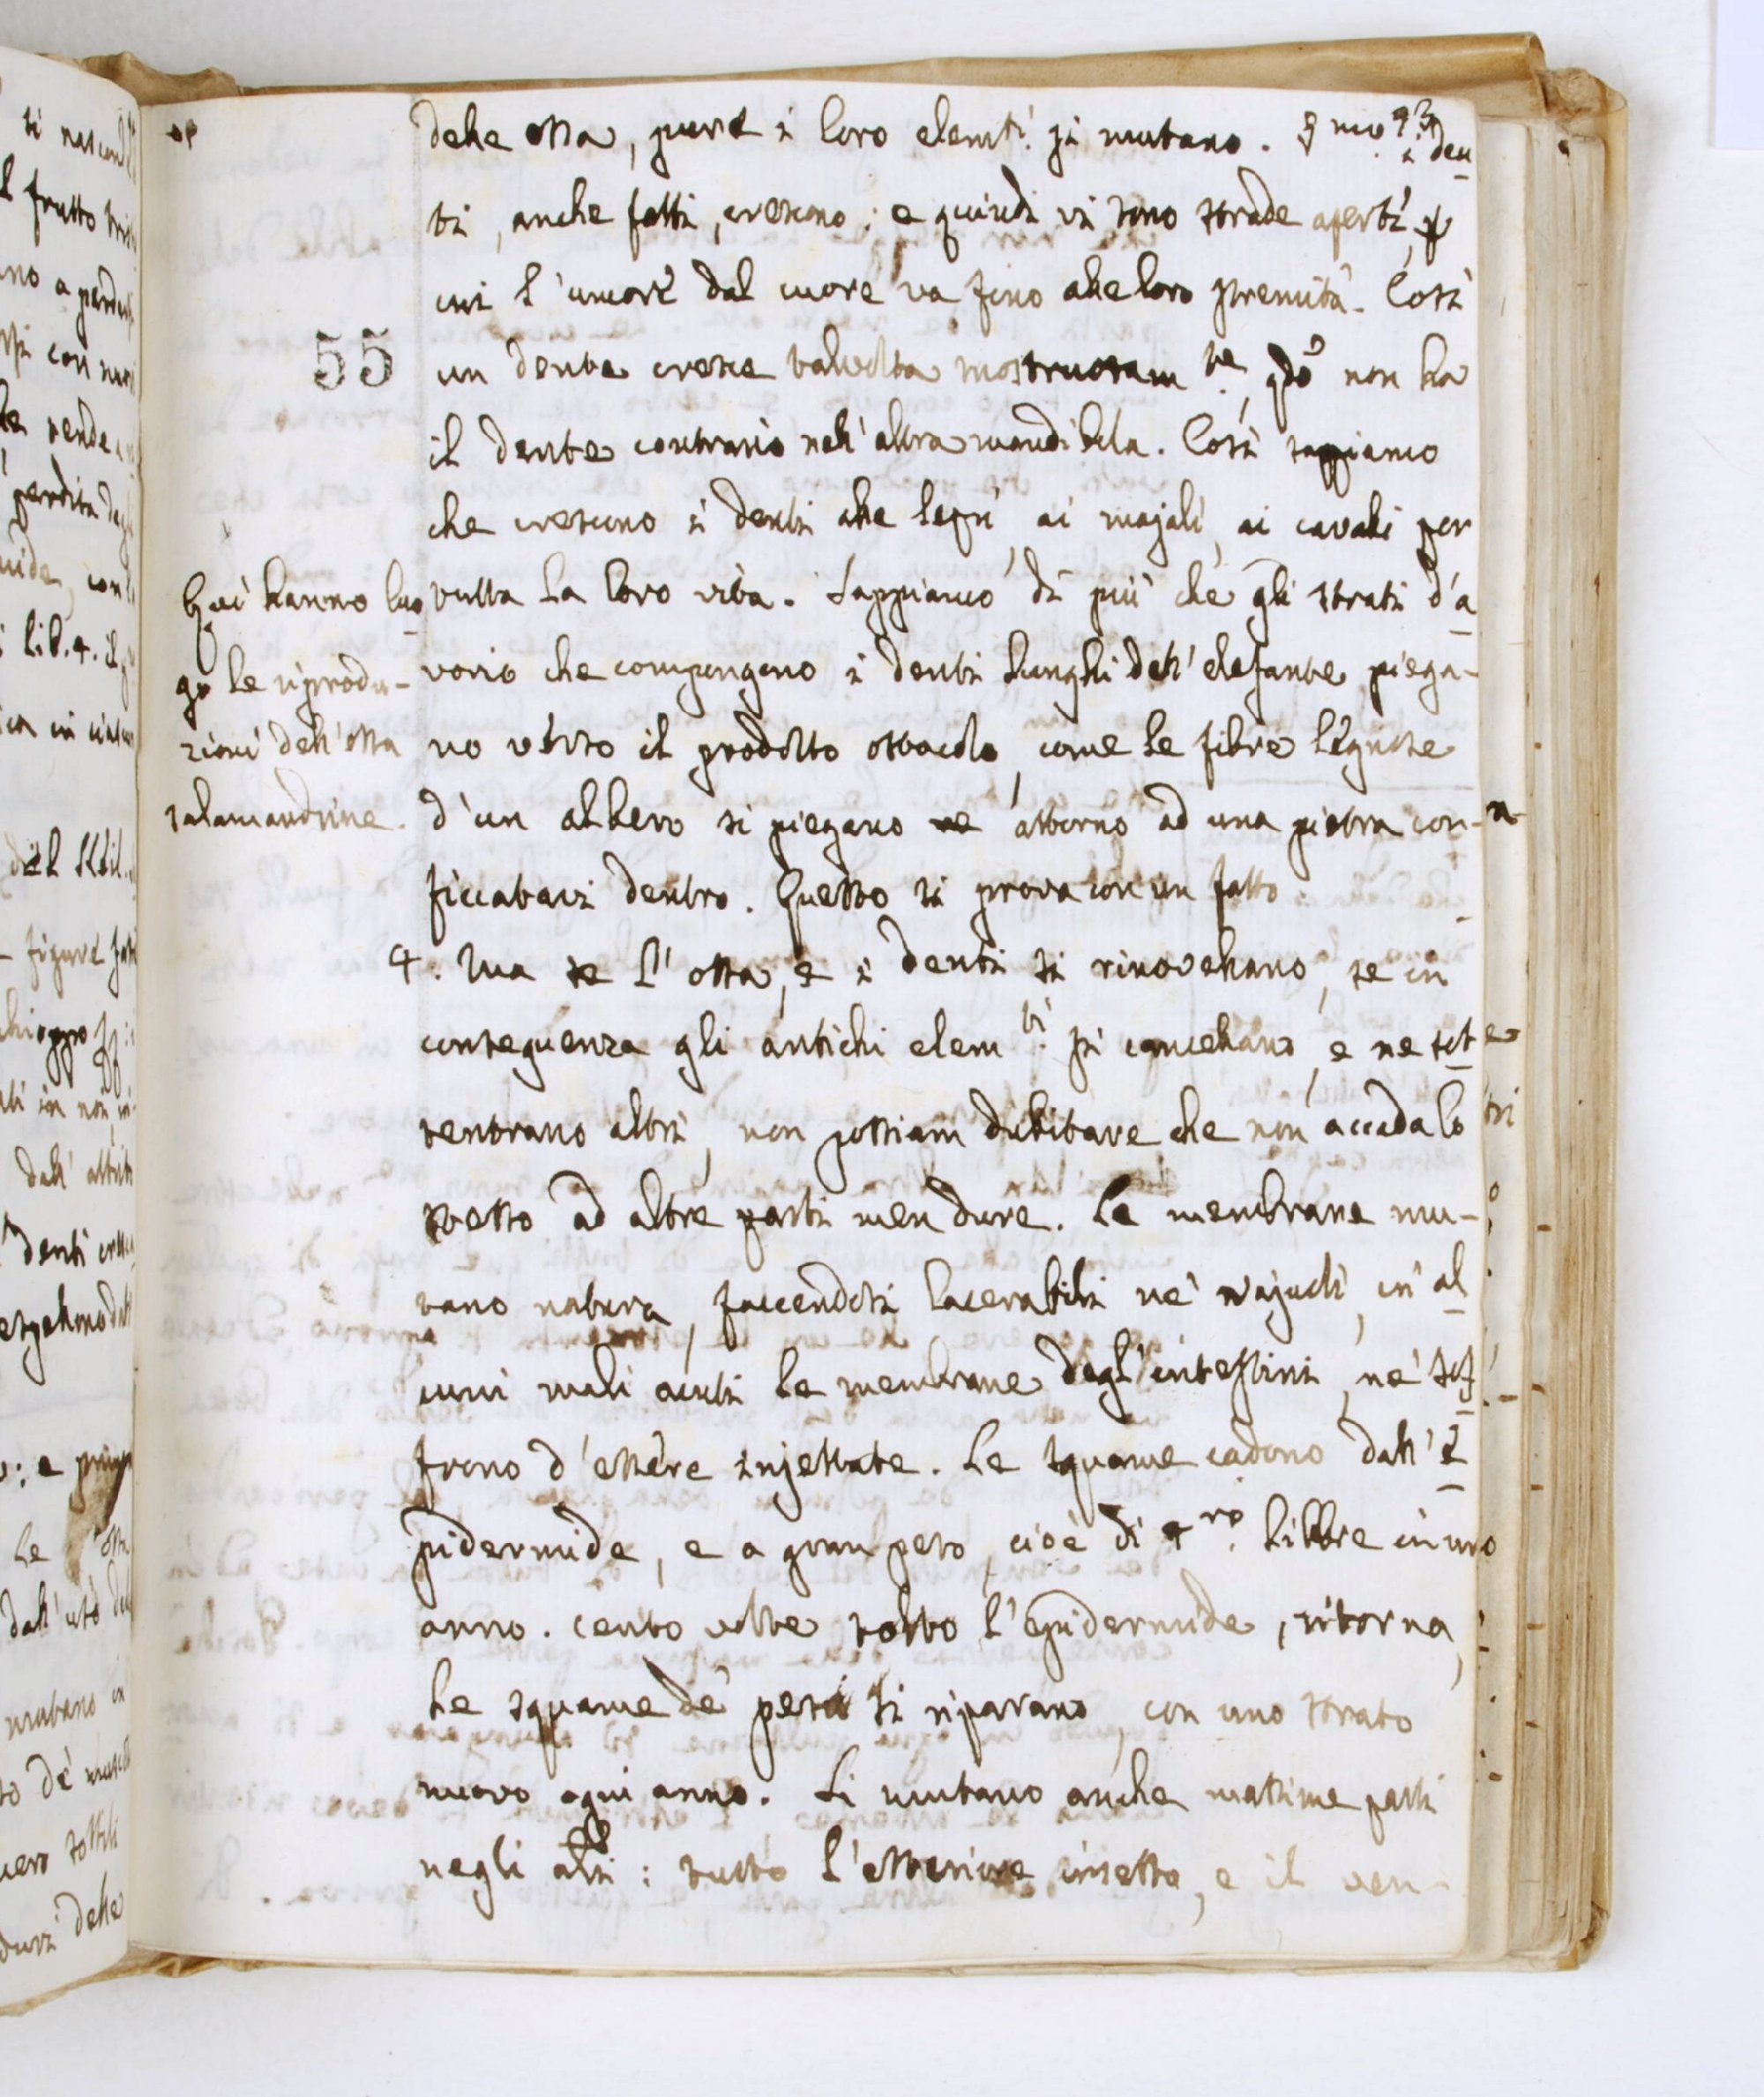 delle ossa, pure i loro elemti. si mutano. i den
ti, anche fatti, crescono; e quindi vi sono strade aperti, p
cui l'umore dal cuore va fino alle loro stremità. Così
55
un dente cresce talvolta mostruosam te, qdo non ha
il dente contrario nell'altra mandibola. Così sappiamo
che crescono i denti alle lepri, ai majali, ai cavalli per
tutta la loro vita. Sappiamo di più che gli strati d'a
vorio che compongono i denti lunghi dell'elefante, piega-
no verso il prodotto ostacolo, come le fibre legnose
d'un albero si piegano attorno ad una pietra con-
ficcatavi dentro. Questo si prova con un fatto
Quì hanno luo
go le riprodu-
zioni dell'ossa
salamandrine.
4. Ma se l'ossa, e i denti si rinovellano, se in
conseguenza gli antichi elemti. si cancellano, e ne sot
tentrano altri, non possiam dubitare che non accada lo
stesso ad altre parti men dure. Le membrane mu-
tano natura, facendosi lacerabili ne' vajuoli, in al
cuni mali acuti le membrane degl'intestini, ne' sof
frono d'essere injettate. Le squame cadono dall'e
pidermide, e a gran peso, cioè di 4ro. libbre in uno
anno. cento volte tolto l'epidermide, ritorna,
le squame de' pesci si riparano, con uno strato
nuovo ogni anno. Si mutano anche massime parti
negli altri: tutto l'esteriore insetto, e il ven-